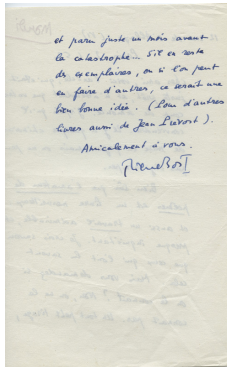 et paru juste un mois avant
la catastrophe. S'il en reste
des exemplaires, ou si l'on peut
en faire d'autres, ce serait une
bien bonne idée. (Comme d'autres
livres aussi de Jean Prévost).
Amicalement à vous.
Pierre Bost